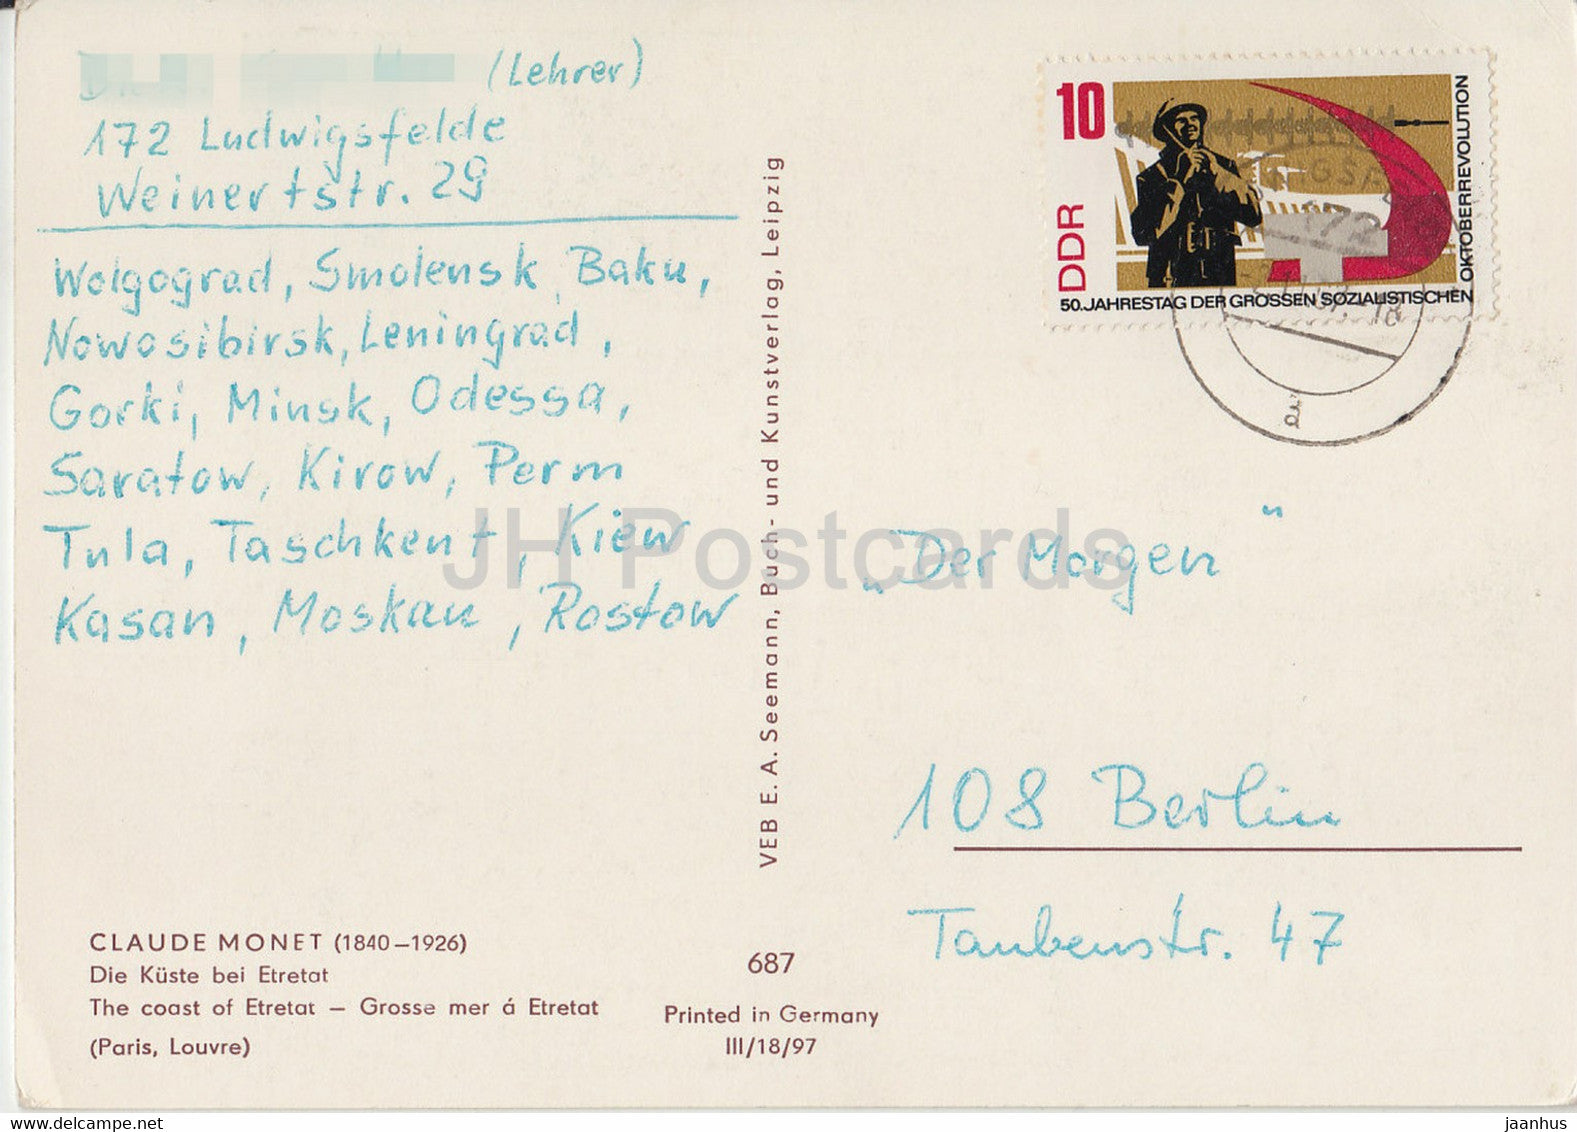 (Lehrer)
172 Ludwigsfelde
Weinertstr. 29
Wolgograd, Smolensk, Baku,
Nowosibirsk, Leningrad,
Gorki, Minsk, Odessa,
Saratow, Kirow, Perm
Tula, Taschkent, Kiew
Kasan, Moskau, Rostow
CLAUDE MONET (1840–1926)
Die Küste bei Etretat
The coast of Etretat – Grosse mer á Etretat
(Paris, Louvre)
VEB E. A. Seemann, Buch- und Kunstverlag, Leipzig
687
Printed in Germany
III/18/97
10
DDR
50. JAHRESTAG DER GROSSEN SOZIALISTISCHEN
OKTOBERREVOLUTION
172
„Der Morgen“
108 Berlin
Taubenstr. 47
JH Postcards
© www.delcampe.net
jaanhus